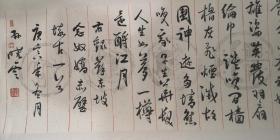 雄姿英發羽扇
綸巾談笑間檣
櫓灰飛煙滅故
國神遊多情應
笑我早生華髮
人生如夢一樽
還酹江月
右錄蘇東坡
念奴嬌赤壁
懷古一首
年冬月
孫曉雲